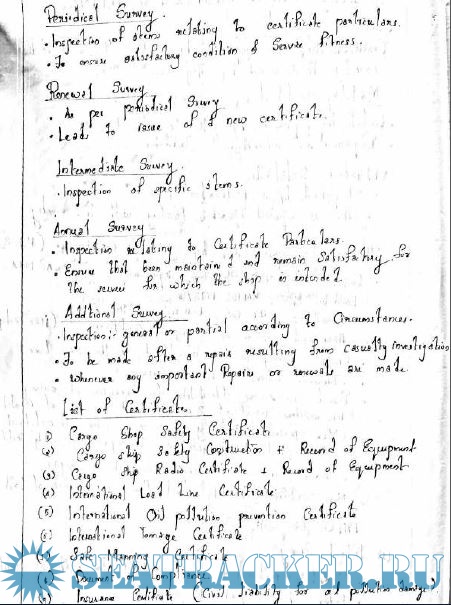 Periodical Survey.
• Inspection of items relating to certificate particulars.
• To ensure satisfactory condition & Service fitness.
Renewal Survey
• As per periodical Survey
• Leads to issue of a new certificate.
Intermediate Survey.
• Inspection of specific items.
Annual Survey
• Inspection relating to Certificate Particulars
• Ensure that been maintain'd and remain Satisfactory for
the service for which the ship is intended.
Additional Survey
• Inspection :- general or partial according to Circumstances.
• To be made after a repair resulting from casualty investigation
• whenever any important Repairs or renewals are made.
List of Certificate
(1) Cargo Ship Safety Certificate
(2) Cargo ship Safety Construction + Record of Equipment
(3) Cargo Ship Radio Certificate + Record of Equipment
(4) International Load Line Certificate
(5) International Oil pollution prevention Certificate
(6) International Tonnage Certificate
Safe Manning Certificate
Document of Compliance
Insurance Certificate (Civil liability for oil pollution damage)
SEATRACKER.RU